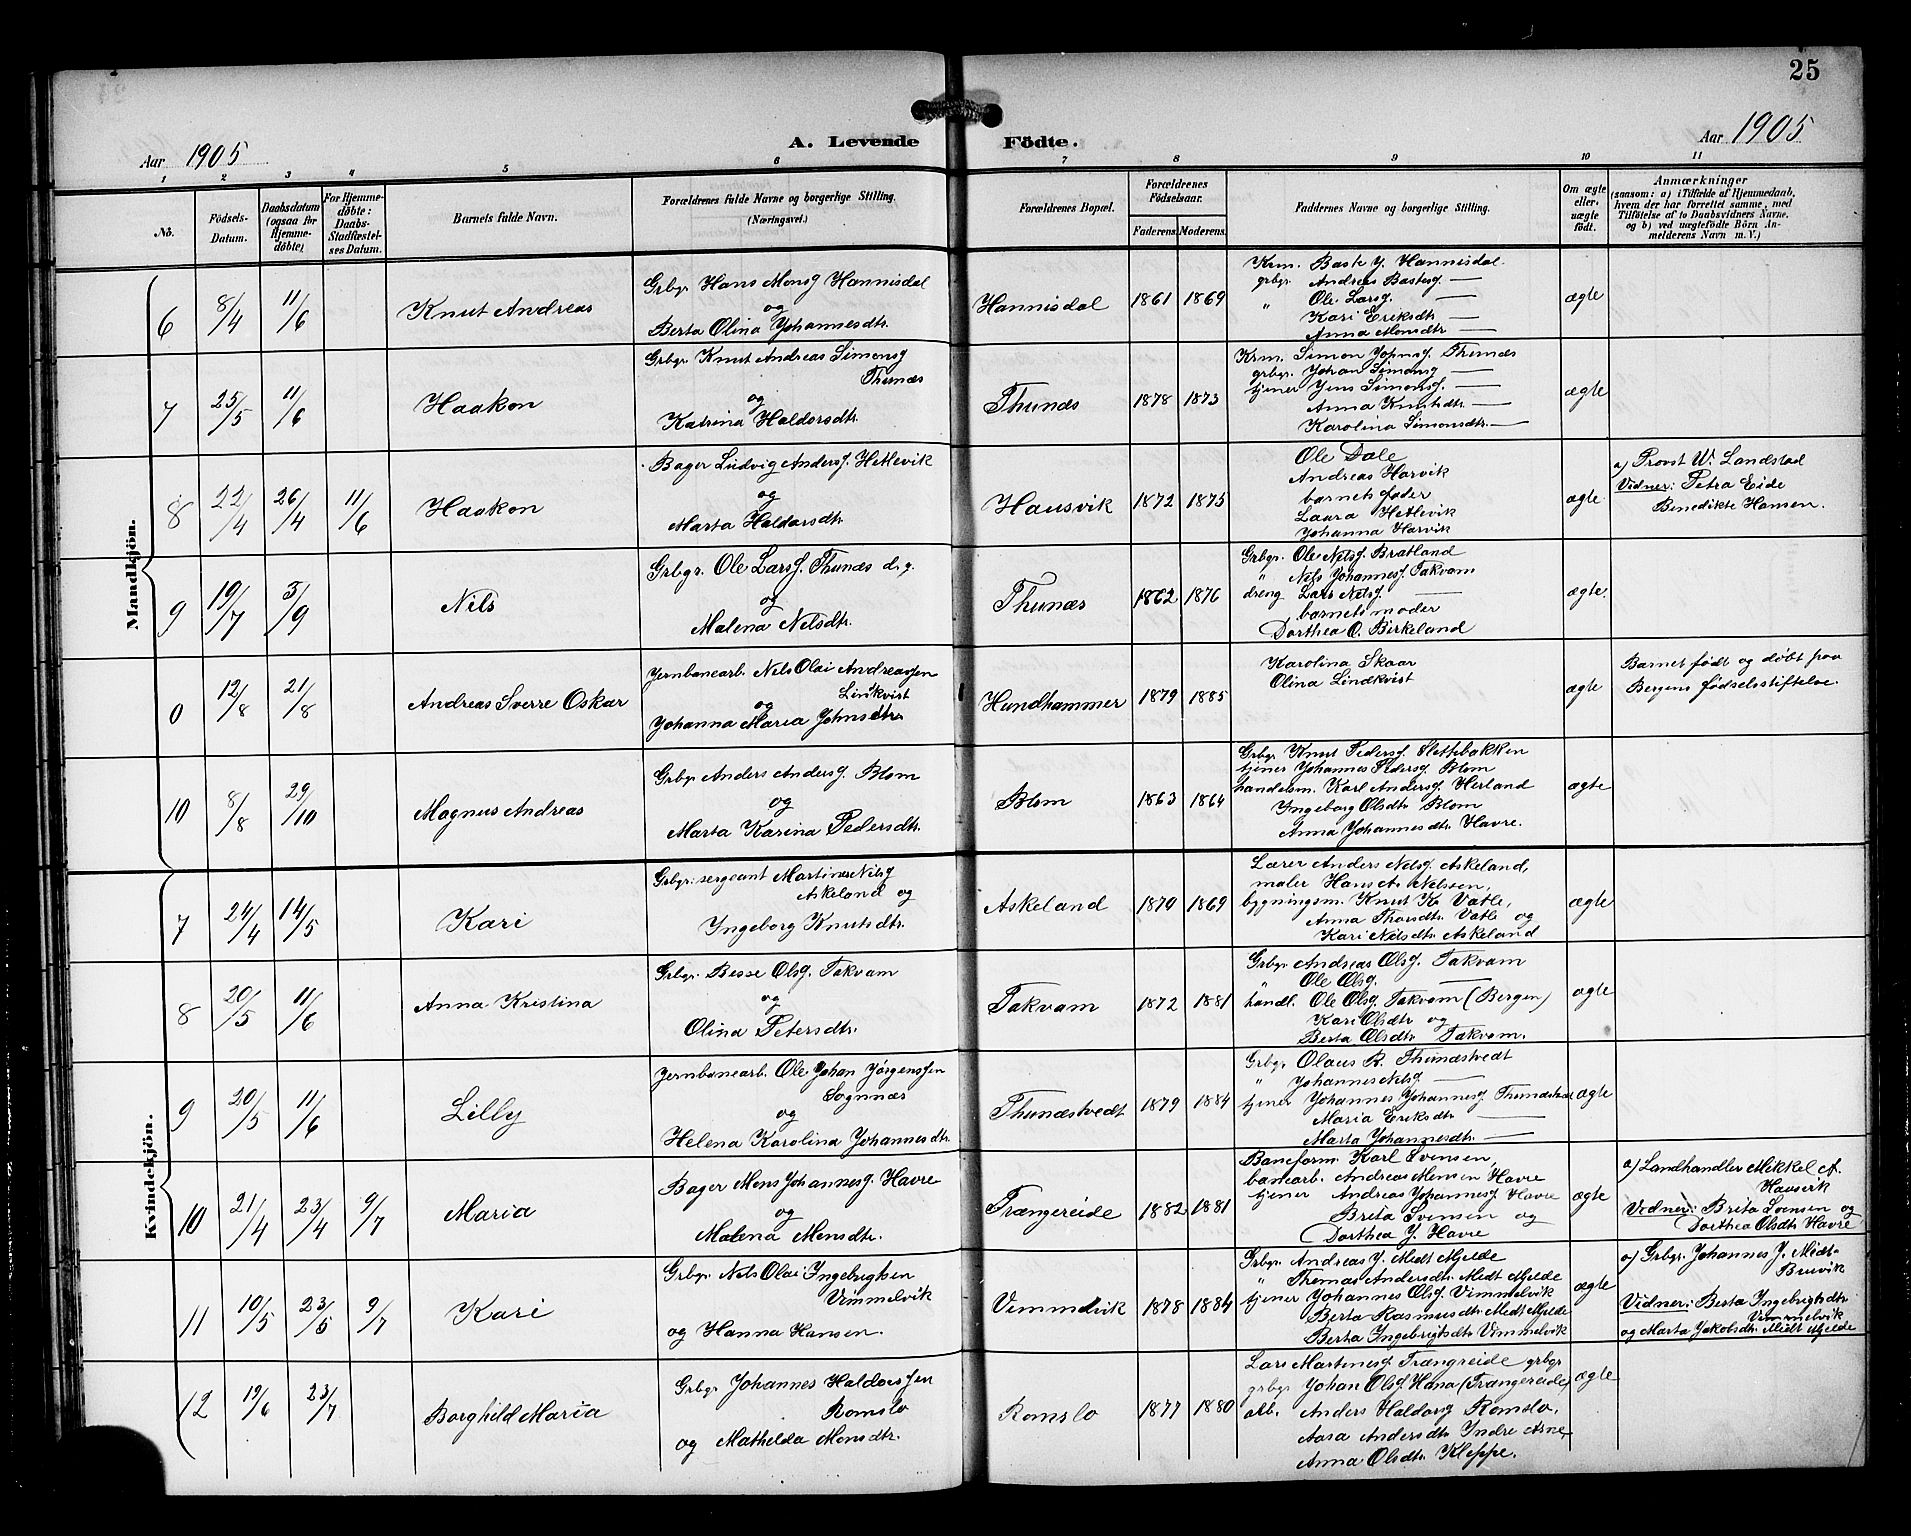 25
Aar 1905
A. Levende Födte.
Aar 1905
1 2 3 4 5 6 7 8 9 10 11
No.
Födsels-Datum.
Daabsdatum (ogsaa for Hjemme-döbte).
For Hjemme-döbte: Daabs-Stadfæstel-ses Datum.
Barnets fulde Navn.
Forældrenes fulde Navne og borgerlige Stilling. (Næringsvei.)
Forældrenes Bopæl.
Forældrenes Födselsaar.
Faderens. Moderens.
Faddernes Navne og borgerlige Stilling.
Om ægte eller uægte födt.
Anmærkninger
(saasom: a) i Tilfælde af Hjemmedaab,
hvem der har forrettet samme, med
Tilföielse af to Daabsvidners Navne,
og b) ved uægtefödte Börn An-
melderens Navn m. V.)
Mandkjön.
6 8/4 11/6 Knut Andreas
Grbgr Hans Monsg Hannisdal
og
Berta Olina Johannesdtr.
Hannisdal 1861 1869
Krm. Baste J. Hannisdal
grbgr. Andreas Bastesg —
" Ole Larsg. —
Kari Eriksdtr —
Anna Monsdtr —
ægte
7 25/5 11/6 Haakon
Grbgr Knut Andreas Simonsg
Thunæs
og
Katrina Haldorsdtr.
Thunæs 1878 1873
Krm. Simon Johnsg. Thunæs
grbgr. Johan Simonsg —
tjener Jens Simonsg. —
Anna Knutsdtr. —
Karolina Simonsdtr. —
ægte
8 22/4 26/4 11/6 Haakon
Bager Ludvig Andersg. Hetlevik
og
Marta Haldorsdtr.
Hausvik 1872 1875
Ole Dale
Andreas Harvik
barnets fader
Laura Hetlevik
Johanna Harvik
ægte
a) Provst W. Landstad
Vidner: Petra Eide
Benedikte Hansen.
9 19/7 3/9 Nils
Grbgr. Ole Larsg. Thunæs d.y.
og
Malena Nilsdtr.
Thunæs 1862 1876
Grbgr. Ole Nilsg. Bratland
" Nils Johannesg. Takvam
dreng Lars Nilsg. —
barnets moder
Dorthea O. Birkeland
ægte.
0 12/8 21/8 Andreas Sverre Oskar
Jernbanearb. Nils Olai Andreassen
Lindkvist
og
Johanna Maria Johnsdtr
Hundhammer 1879 1885
Karolina Skaar
Olina Lindkvist
ægte
Barnet født og døbt paa
Bergens fødselsstiftelse.
10 8/8 29/10 Magnus Andreas
Grbgr Anders Andersg. Blom
og
Marta Karina Pedersdtr.
Blom 1863 1864
Grbgr Knut Pedersg. Slettebakken
tjener Johannes Pedersg. Blom
handelsm. Karl Andersg. Herland
Ingeborg Olsdtr Blom
Anna Johannesdtr Havre.
ægte
Kvindekjön.
7 24/4 14/5 Kari
Grbgr. sergeant Martines Nilsg
Askeland og
Ingeborg Knutsdtr.
Askeland 1870 1869
Lærer Anders Nilsg. Askeland,
maler Hans A. Nilssen,
bygningsm. Knut K. Vatle,
Anna Vatle og
Kari Nilsdtr. Askeland
ægte
8 20/5 11/6 Anna Kristina
Grbgr. Besse Olsg. Takvam
og
Olina Petersdtr.
Takvam 1872 1881
Grbgr. Andreas Olsg. Takvam
" Ole Olsg. —
handl. Ole Olsg. Takvam (Bergen)
Kari Olsdtr og
Berta Olsdtr Takvam.
ægte
9 20/5 11/6 Lilly
Jernbanearb. Ole Johan Jørgenssen
Sognnæs
og
Helena Karolina Johannesdtr.
Thunæstvedt 1879 1884
Grbgr Olaus R. Thunæstvedt
" Johannes Nilsg. —
tjener Johannes Johannesg Thunæstvedt
Maria Eriksdtr —
Marta Johannesdtr. —
ægte
10 21/4 23/4 9/7 Maria
Bager Mons Johannesg. Havre
og
Malena Monsdtr.
Trængereide 1882 1881
Baneform. Karl Svensen,
banearb. Andreas Monsen Havre
tjener Andreas Johannesg Havre
Brita Svensen og
Dorthea J. Havre
ægte
a) Landhandler Mikkel A.
Hausvik
Vidner: Brita Svensen og
Dorthea Olsdtr Havre
11 10/5 23/5 9/7 Kari
Grbgr. Nils Olai Ingebrigtsen
Vimmelvik
og Hanna Hansen.
Vimmelvik 1878 1884
Grbgr. Andreas J. Midt Mjelde
" Thomas Andersdtr Midt Mjelde
tjener Johannes Olsg Vimmelvik
Berta Rasmusdtr Midt Mjelde
Berta Ingebrigtsdtr Vimmelvik
ægte
a) Grbgr. Johannes J. Midt-
Bruvik
Vidner: Berta Ingebrigtsdtr
Vimmelvik
og Marta Jakobsdtr. Midt Mjelde
12 19/6 23/7 Borghild Maria
Grbgr Johannes Haldorssen
Romslo
og Mathilda Monsdtr.
Romslo 1877 1880
Lars Martinesg. Trængreide grbgr
grbgr Johan Olsg Hana (Trængereide)
arb. Anders Haldorsg Romslo,
Aasa Andersdtr Indre Arne
Anna Olsdtr Kleppe.
ægte